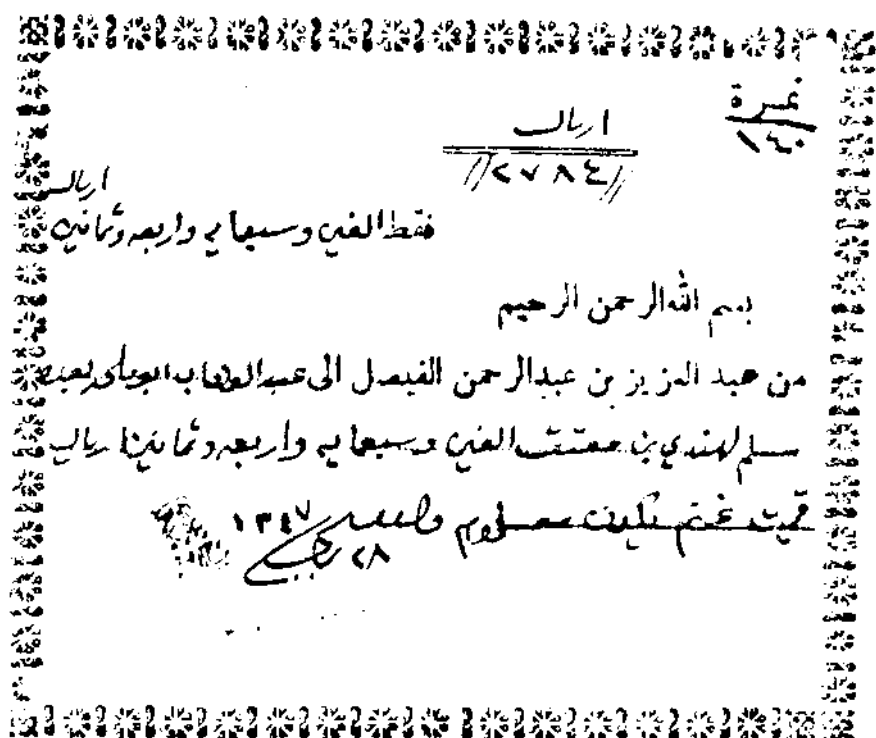 نمرة
١٤٠
اريال
٢٧٨٤
اريال
فقط الفين وسبعمايه واربعه وثمانين
بسم الله الرحمن الرحيم
من عبد العزيز بن عبدالرحمن الفيصل الى عبدالوهاب ابوملحه بعده
سلم لهندي بن معتق الفين وسبعمايه واربعه وثمانين اريال
قيمت غنم يكون معلوم والسلام
٢٨ رجب ١٣٤٧